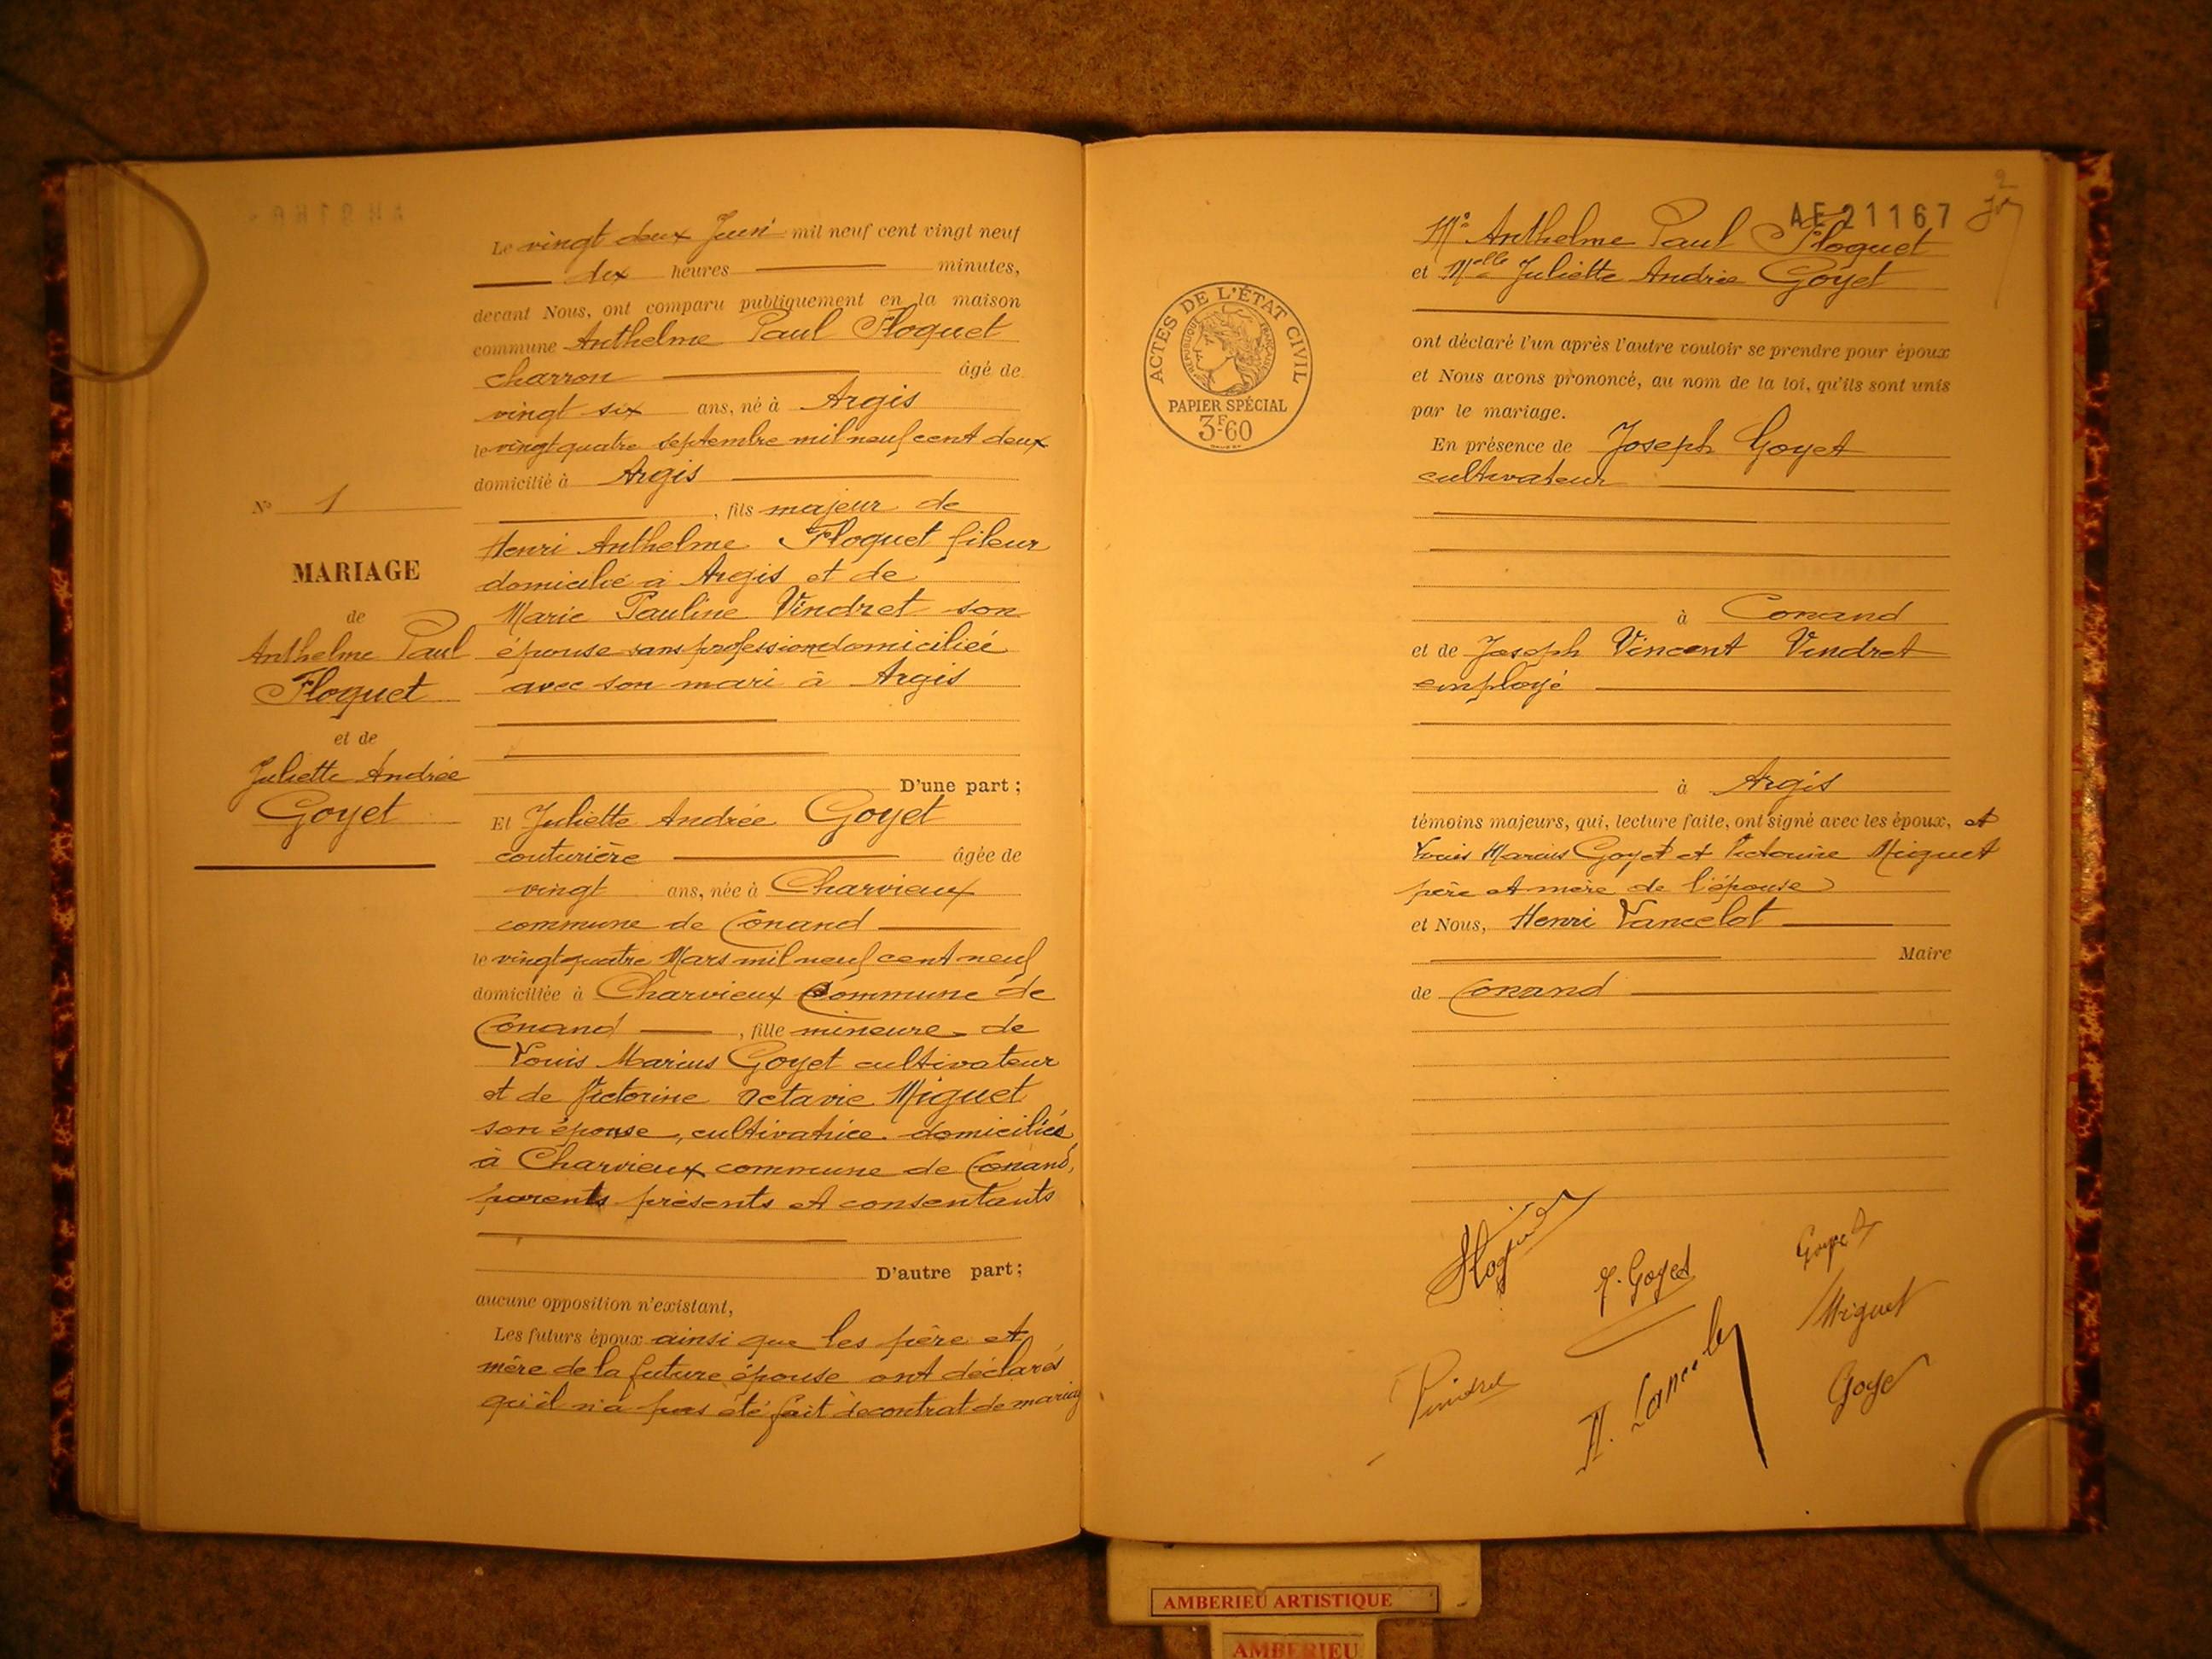 N° 1
MARIAGE
de
Anthelme Paul
Floquet
et de
Juliette Andrée
Goyet
Le vingt deux Juin mil neuf cent vingt neuf
dix heures minutes,
devant Nous, ont comparu publiquement en la maison
commune Anthelme Paul Floquet
charron âgé de
vingt six ans, né à Argis
le vingt quatre septembre mil neuf cent deux
domicilié à Argis
, fils majeur de
Henri Anthelme Floquet fileur
domicilié à Argis et de
Marie Pauline Vindret son
épouse sans profession domiciliée
avec son mari à Argis
D'une part ;
Et Juliette Andrée Goyet
couturière âgée de
vingt ans, née à Charvieux
commune de Conand
le vingt quatre Mars mil neuf cent neuf
domiciliée à Charvieux Commune de
Conand , fille mineure de
Louis Marius Goyet cultivateur
et de Victorine Octavie Miguet
son épouse, cultivatrice domiciliés
à Charvieux commune de Conand,
parents présents et consentants
D'autre part ;
aucune opposition n'existant,
Les futurs époux ainsi que les père et
mère de la future épouse ont déclarés
qu'il n'a pas été fait de contrat de mariag
AE21167
2
Mr Anthelme Paul Floquet
et Melle Juliette Andrée Goyet
ont déclaré l'un après l'autre vouloir se prendre pour époux
et Nous avons prononcé, au nom de la loi, qu'ils sont unis
par le mariage.
En présence de Joseph Goyet
cultivateur
à Conand
et de Joseph Vincent Vindret
employé
à Argis
témoins majeurs, qui, lecture faite, ont signé avec les époux, et
Louis Marius Goyet et Victorine Miguet
père et mère de l'épouse
et Nous, Henri Lancelot
Maire
de Conand
ACTES DE L'ÉTAT CIVIL
RÉPUBLIQUE FRANÇAISE
PAPIER SPÉCIAL
3F60
Floquet
J. Goyet
Goyet
Miguet
Vindret
H. Lancelot
Goyet
AMBERIEU ARTISTIQUE
AMBERIEU